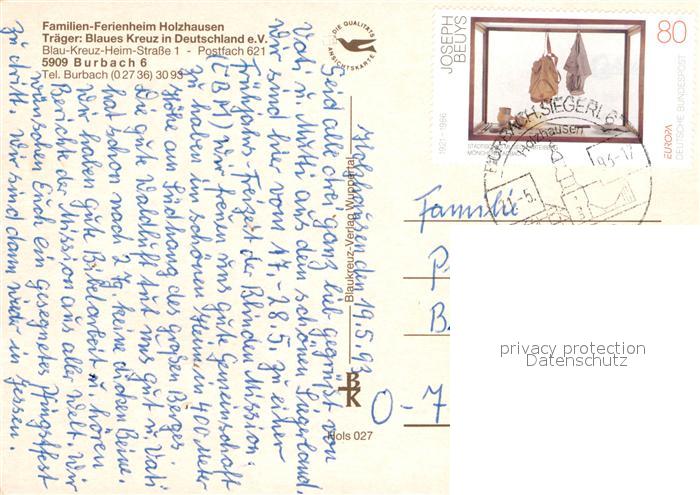 Familien-Ferienheim Holzhausen
Träger: Blaues Kreuz in Deutschland e.V.
Blau-Kreuz-Heim-Straße 1 - Postfach 621
5909 Burbach 6
Tel. Burbach (0 27 36) 30 93
DIE QUALITÄTS
ANSICHTSKARTE
JOSEPH
BEUYS
1921 - 1986
80
EUROPA
DEUTSCHE BUNDESPOST
BURBACH, SIEGERL 6
Holzhausen
-5.
93-17
Holzhausen, den 19.5.93
Seid alle drei ganz lieb gegrüßt von
Vati u. Mutti aus dem schönen Siegerland.
Wir sind hier vom 17.-28.5. zu einer
Frühjahr-Freizeit der Blinden Mission.
(CBM) Wir freuen uns gute Gemeinschaft
zu haben im schönen Heim in 400 Meter
Höhe am Südhang des großen Berges.
Die gute Waldluft tut uns gut u. Vati
hat schon nach 2 Tg. keine dicken Beine.
Wir haben gute Bibelarbeit u. hören
Berichte der Mission aus aller Welt. Wir
wünschen Euch ein gesegnetes Pfingstfest
zu dritt. Wir sind dann wieder in Jessen.
Blaukreuz-Verlag Wuppertal
BK
Hols 027
Familie
P
B
O-7
privacy protection
Datenschutz